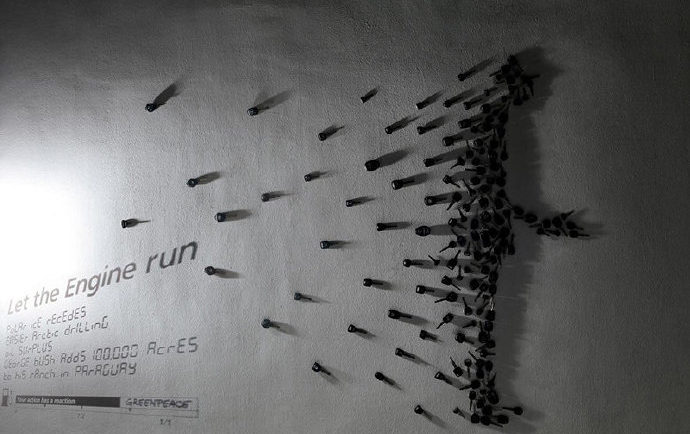 Let the Engine run
PoLAr icE rEcEdES
EASiEr Arctic drilLinG
oiL SUrPLUS
GEorGE bUSh AddS 100.000 AcrES
to hiS rAnch in PArAGUAY
Your action has a reaction
GREENPEACE